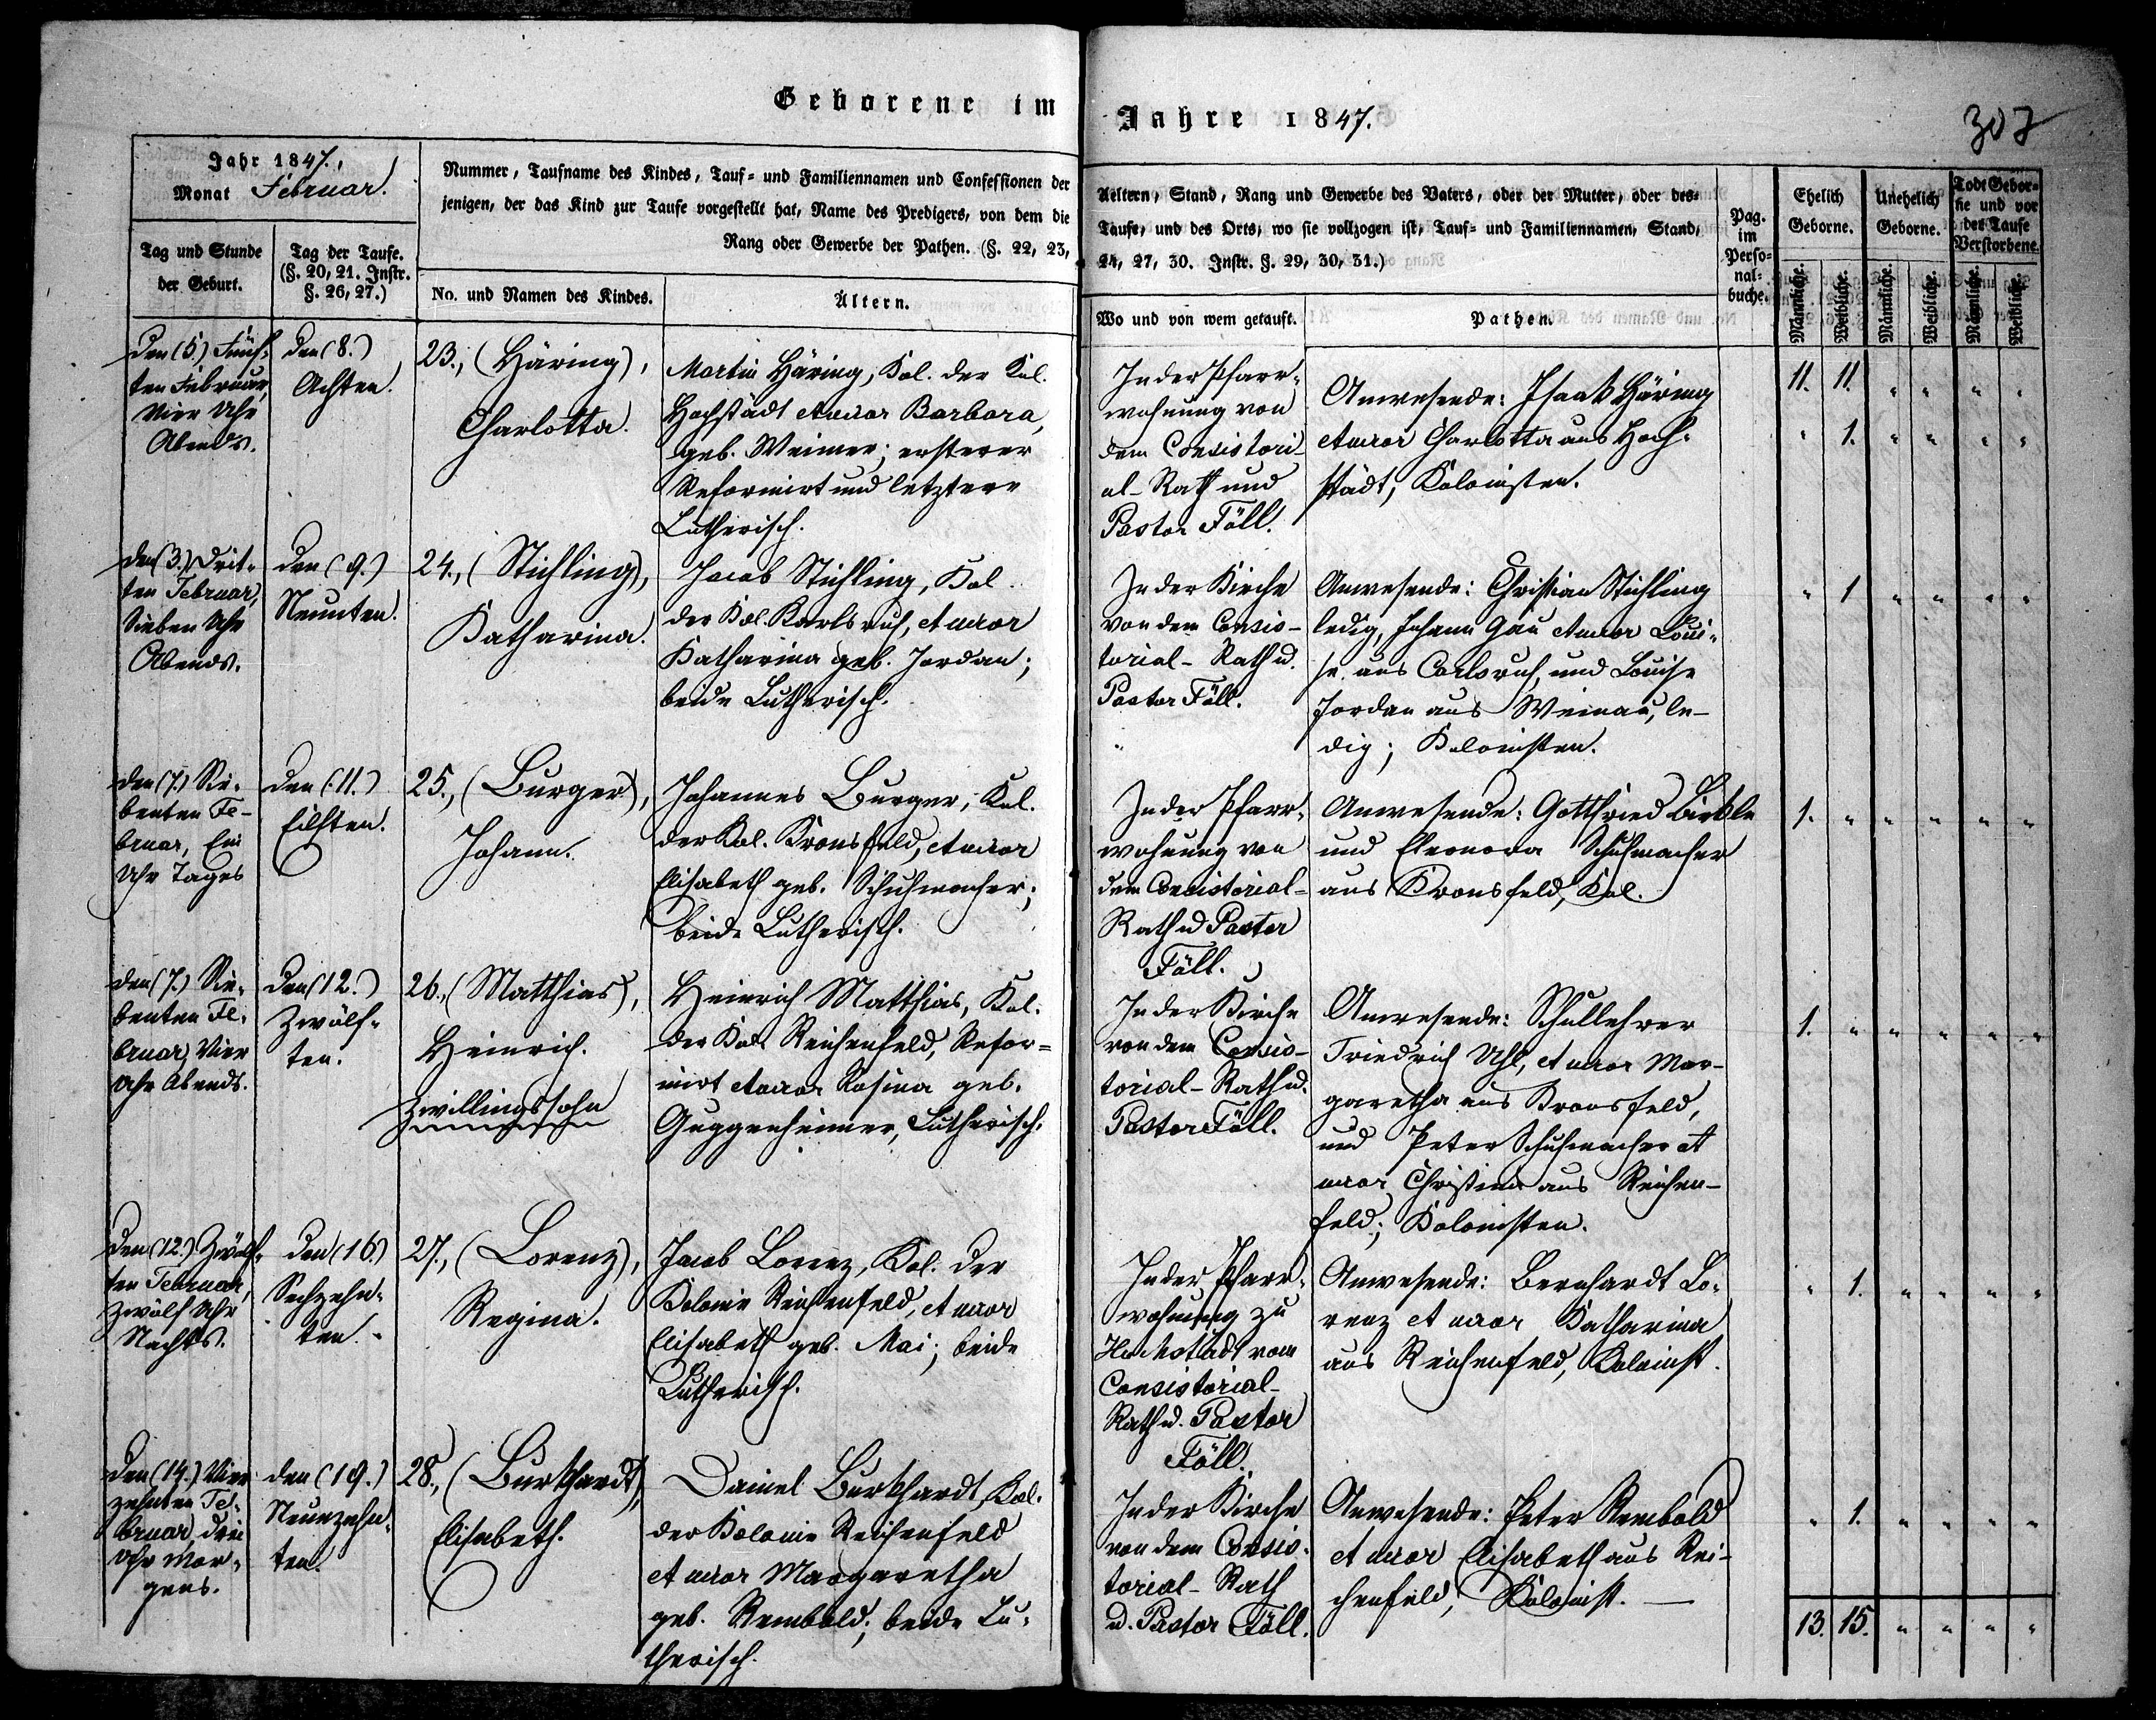 Geborene im Jahre 1847.
307
Jahr 1847.,
Monat Februar.
Nummer, Taufname des Kindes, Tauf- und Familiennamen und Confessionen der
jenigen, der das Kind zur Taufe vorgestellt hat, Name des Predigers, von dem die
Rang oder Gewerbe der Pathen. (§. 22, 23,
Aeltern, Stand, Rang und Gewerbe des Vaters, oder der Mutter, oder des-
Taufe, und des Orts, wo sie vollzogen ist, Tauf- und Familiennamen, Stand,
24, 27, 30. Instr. §. 29, 30, 31.)
Tag und Stunde
der Geburt.
Tag der Taufe.
(§. 20, 21. Instr.
§. 26, 27.)
No. und Namen des Kindes.
Ältern.
Wo und von wem getauft.
Pathen.
Pag.
im
Perso-
nal-
buche.
Ehelich
Geborne.
Unehelich
Geborne.
Todt Gebor-
ne und vor
der Taufe
Verstorbene.
Männliche.
Weibliche.
Männliche.
Weibliche.
Männliche.
Weibliche.
den (5.) Fünf-
ten Februar,
Vier Uhr
Abends.
den (8.)
Achten.
23., (Häring),
Charlotta.
Martin Häring, Kol. der Kol.
Hochstädt et uxor Barbara,
geb. Weimer; ersterer
Reformirt und letztere
Lutherisch.
In der Pfarr-
wohnung von
dem Consistori-
al-Rath und
Pastor Föll.
Anwesende: Isaak Häring
et uxor Charlotta aus Hoch-
städt, Kolonisten.
11. 11. " " " "
" 1. " " " "
den (3.) Drit-
ten Februar,
Sieben Uhr
Abends.
den (9.)
Neunten.
24., (Stichling),
Katharina.
Jacob Stichling, Kol.
der Kol. Karlsruh, et uxor
Katharina geb. Jordan;
beide Lutherisch.
In der Kirche
von dem Consis-
torial-Rath u.
Pastor Föll.
"
Anwesende: Christian Stichling
ledig, Johann Gau et uxor Loui-
se aus Carlsruh, und Louise
Jordan aus Weinau, le-
dig; Kolonisten.
" 1 " " " "
den (7.) Sie-
benten Fe-
bruar, Ein
Uhr Tages
den (11.)
Eilften.
25., (Burger),
Johann.
Johannes Burger, Kol.
der Kol. Kronsfeld, et uxor
Elisabeth geb. Schuhmacher;
beide Lutherisch.
In der Pfarr-
wohnung von
dem Consistorial-
Rath u Pastor
Föll.
Anwesende: Gottfried Birkle
und Eleonora Schuhmacher
aus Kronsfeld, Kol.
1. " " " " "
den (7.) Sie-
benten Fe-
bruar, Vier
Uhr Abends.
den (12.)
Zwölf-
ten.
26., (Matthias),
Heinrich.
Zwillingssohn
Heinrich Matthias, Kol.
der Kol. Reichenfeld, Refor-
mirt et uxor Rosina geb.
Guggenheimer, Lutherisch.
In der Kirche
von dem Consis-
torial-Rath u.
Pastor Föll.
Anwesende: Schullehrer
Friedrich Uhl, et uxor Mar-
garetha aus Kronsfeld,
und Peter Schuhmacher et
uxor Christina aus Reichen-
feld; Kolonisten.
1. " " " " "
den (12.) Zwölf-
ten Februar,
Zwölf Uhr
Nachts.
den (16.)
Sechzehn-
ten.
27., (Lorenz),
Regina.
Jacob Lorenz, Kol. der
Kolonie Reichenfeld, et uxor
Elisabeth geb. Mai; beide
Lutherisch.
In der Pfarr-
wohnung zu
Hochstädt vom
Consistorial-
Rath u. Pastor
Föll.
Anwesende: Bernhardt Lo-
renz et uxor Katharina
aus Reichenfeld, Kolonist.
" 1. " " " "
den (14.) Vier
zehnten Fe-
bruar, drei
Uhr Mor-
gens.
den (19.)
Neunzehn-
ten.
28., (Burkhardt),
Elisabeth.
Daniel Burkhardt, Kol.
der Kolonie Reichenfeld
et uxor Margaretha
geb. Rembold; beide Lu-
therisch.
In der Kirche
von dem Consis-
torial-Rath
u. Pastor Föll.
Anwesende: Peter Rembold
et uxor Elisabeth aus Rei-
chenfeld, Kolonist.
" 1. " " " "
13. 15. " " " "